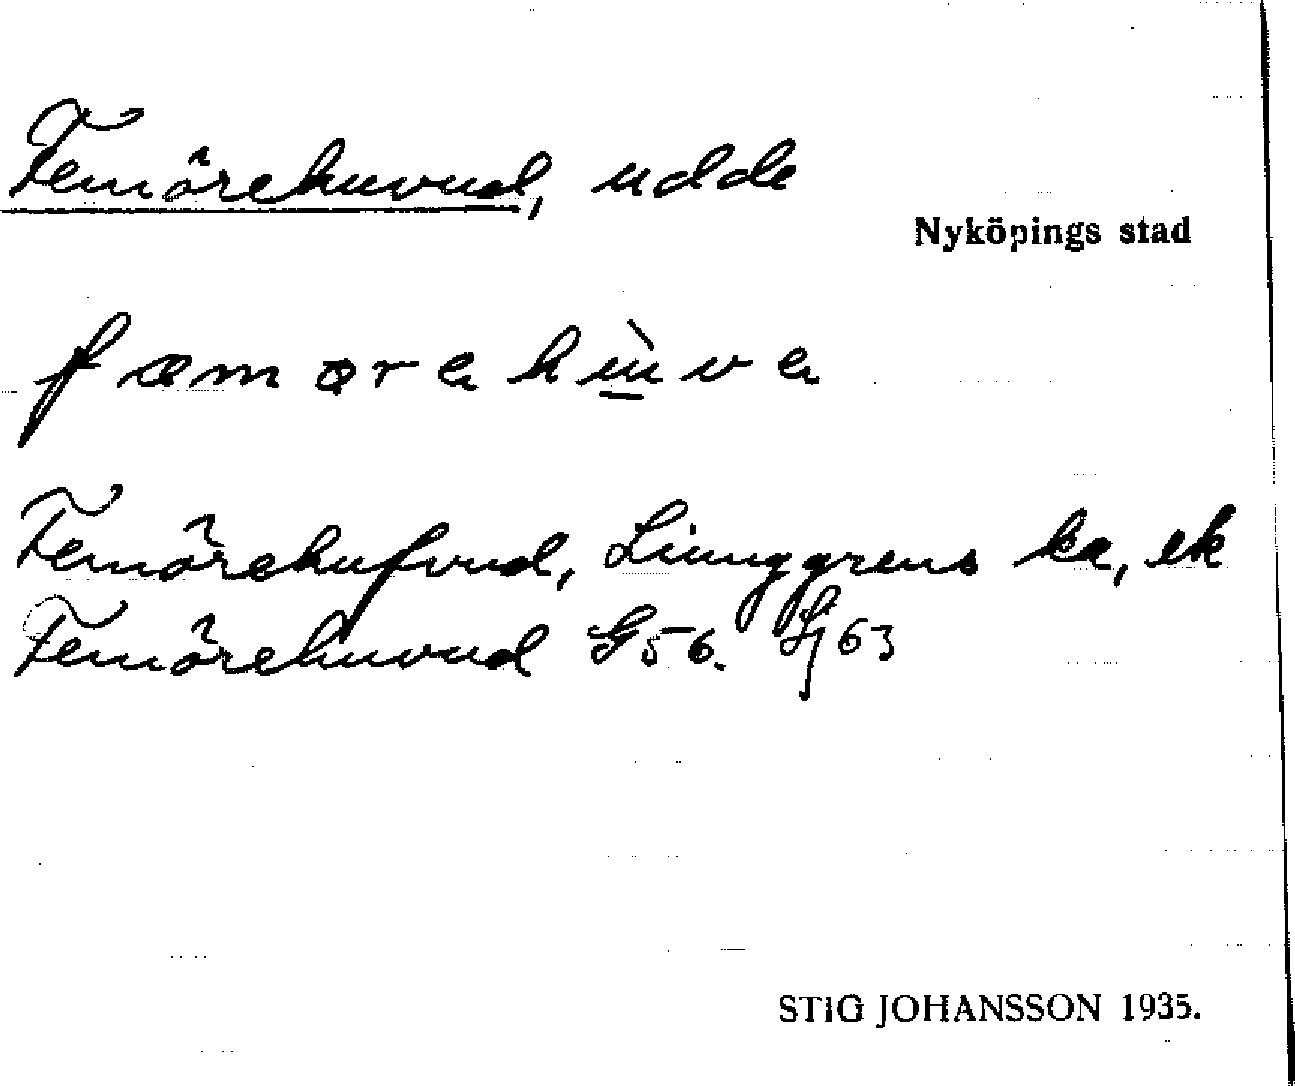 Femörehuvud, udde
Nyköpings stad
Femörehufvud, Liunggrens ka, ek
Femörehuvud G56. Sj63
STIG JOHANSSON 1935.